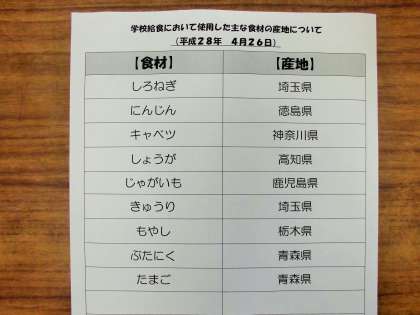 学校給食において使用した主な食材の産地について
(平成28年 4月26日)
【食材】 【産地】
しろねぎ 埼玉県
にんじん 徳島県
キャベツ 神奈川県
しょうが 高知県
じゃがいも 鹿児島県
きゅうり 埼玉県
もやし 栃木県
ぶたにく 青森県
たまご 青森県